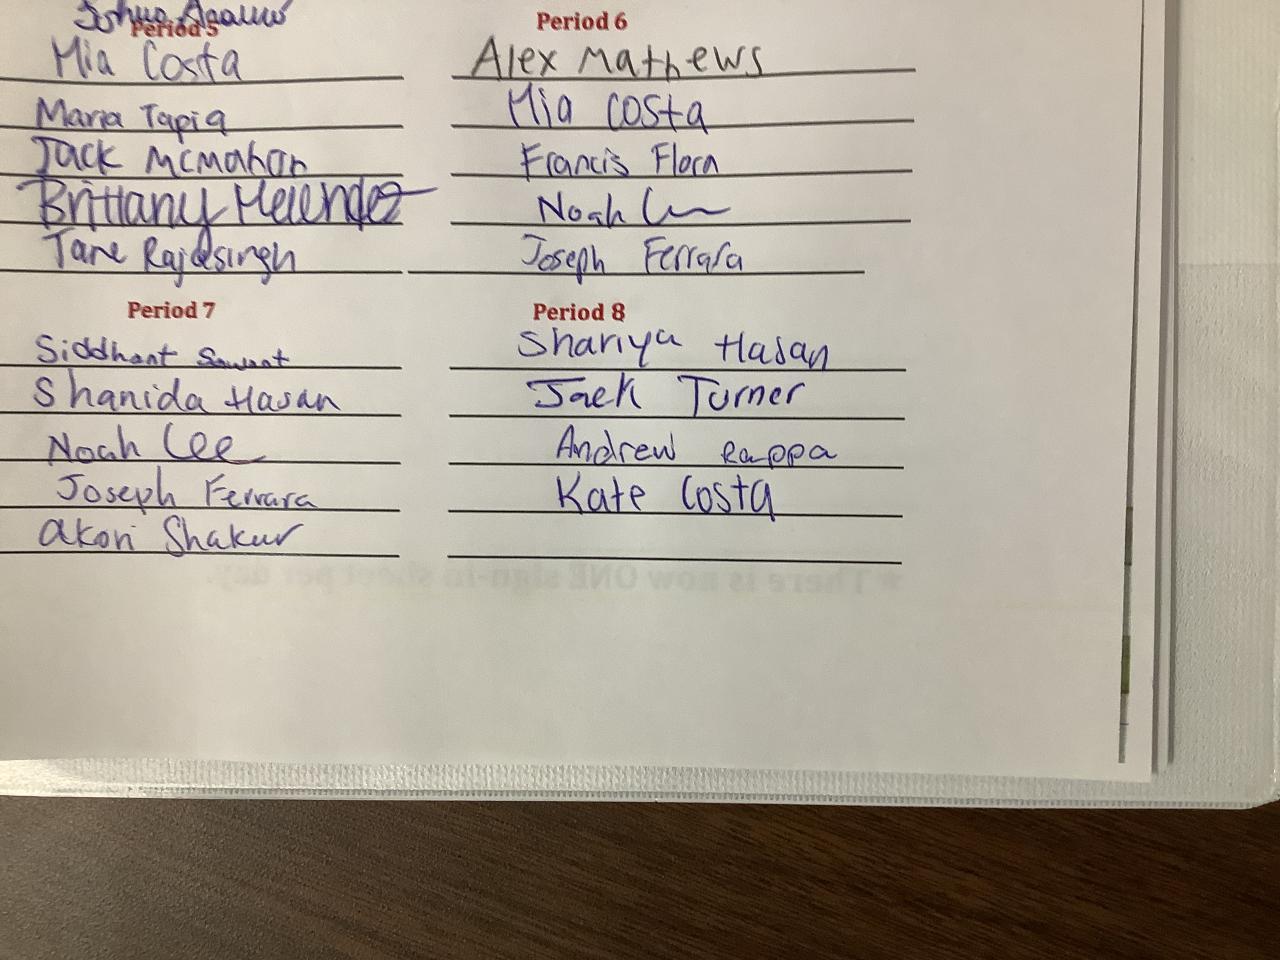 Joshua
Period 5
Mia Costa
Maria Tapia
Jack McMahon
Brittany Melendez
Jane Rajasingh
Period 6
Alex Mathews
Mia Costa
Francis Flora
Noah
Joseph Ferrara
Period 7
Siddhant Sawant
Shanida Hasan
Noah Lee
Joseph Ferrara
Akori Shakur
Period 8
Shariya Hasan
Jack Turner
Andrew Rappa
Kate Costa
★ There is now ONE sign-in sheet per day.